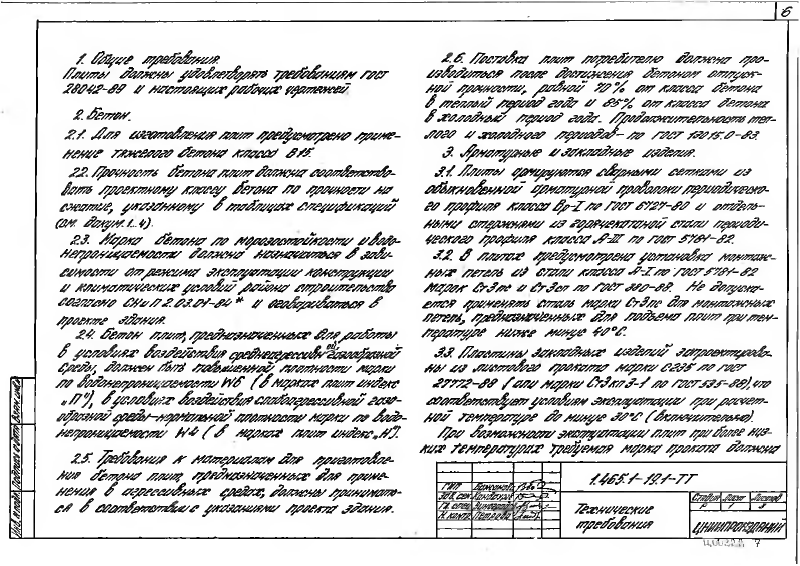 6
1. Общие требования.
Плиты должны удовлетворять требованиям ГОСТ
28042-89 и настоящих рабочих чертежей.
2. Бетон.
2.1. Для изготовления плит предусмотрено приме-
нение тяжелого бетона класса В15.
2.2. Прочность бетона плит должна соответство-
вать проектному классу бетона по прочности на
сжатие, указанному в таблицах спецификаций
(см. докум. 1...4).
2.3. Марка бетона по морозостойкости и водо-
непроницаемости должна назначаться в зави-
симости от режима эксплуатации конструкции
и климатических условий района строительства
согласно СНиП 2.03.01-84* и оговариваться в
проекте здания.
2.4. Бетон плит, предназначенных для работы
в условиях воздействия среднеагрессивной газообразной
среды, должен быть повышенной плотности марки
по водонепроницаемости W6 (в марках плит индекс
„П"), в условиях воздействия слабоагрессивной газо-
образной среды-нормальной плотности марки по водо-
непроницаемости W4 (в марках плит индекс „Н").
2.5. Требования к материалам для приготовле-
ния бетона плит, предназначенных для приме-
нения в агрессивных средах, должны принимать-
ся в соответствии с указаниями проекта здания.
2.6. Поставка плит потребителю должна про-
изводиться после достижения бетоном отпуск-
ной прочности, равной 70% от класса бетона
в теплый период года и 85% от класса бетона
в холодный период года. Продолжительность теп-
лого и холодного периодов - по ГОСТ 13015.0-83.
3. Арматурные и закладные изделия.
3.1. Плиты армируются сварными сетками из
обыкновенной арматурной проволоки периодическо-
го профиля класса Вр-I по ГОСТ 6727-80 и отдель-
ными стержнями из горячекатаной стали периоди-
ческого профиля класса А-III по ГОСТ 5781-82.
3.2. В плитах предусмотрена установка монтаж-
ных петель из стали класса А-I по ГОСТ 5781-82
марок Ст3пс и Ст3сп по ГОСТ 380-88. Не допуска-
ется применять сталь марки Ст3пс для монтажных
петель, предназначенных для подъема плит при тем-
пературе ниже минус 40°С.
3.3. Пластины закладных изделий запроектирова-
ны из листового проката марки С235 по ГОСТ
27772-88 (или марки Ст3 по ГОСТ 535-88), что
соответствует условиям эксплуатации при расчет-
ной температуре до минус 30°С (включительно).
При возможности эксплуатации плит при более низ-
ких температурах требуемая марка проката должна
1.465.1-19.1-ТТ
ГИП
Зав. сек.
Гл. спец.
Н. контр. Петрова
Технические
требования
Стадия Лист Листов
Р 1 3
ЦНИИПРОМЗДАНИЙ
Инв. № подл. Подпись и дата Взам. инв. №
7